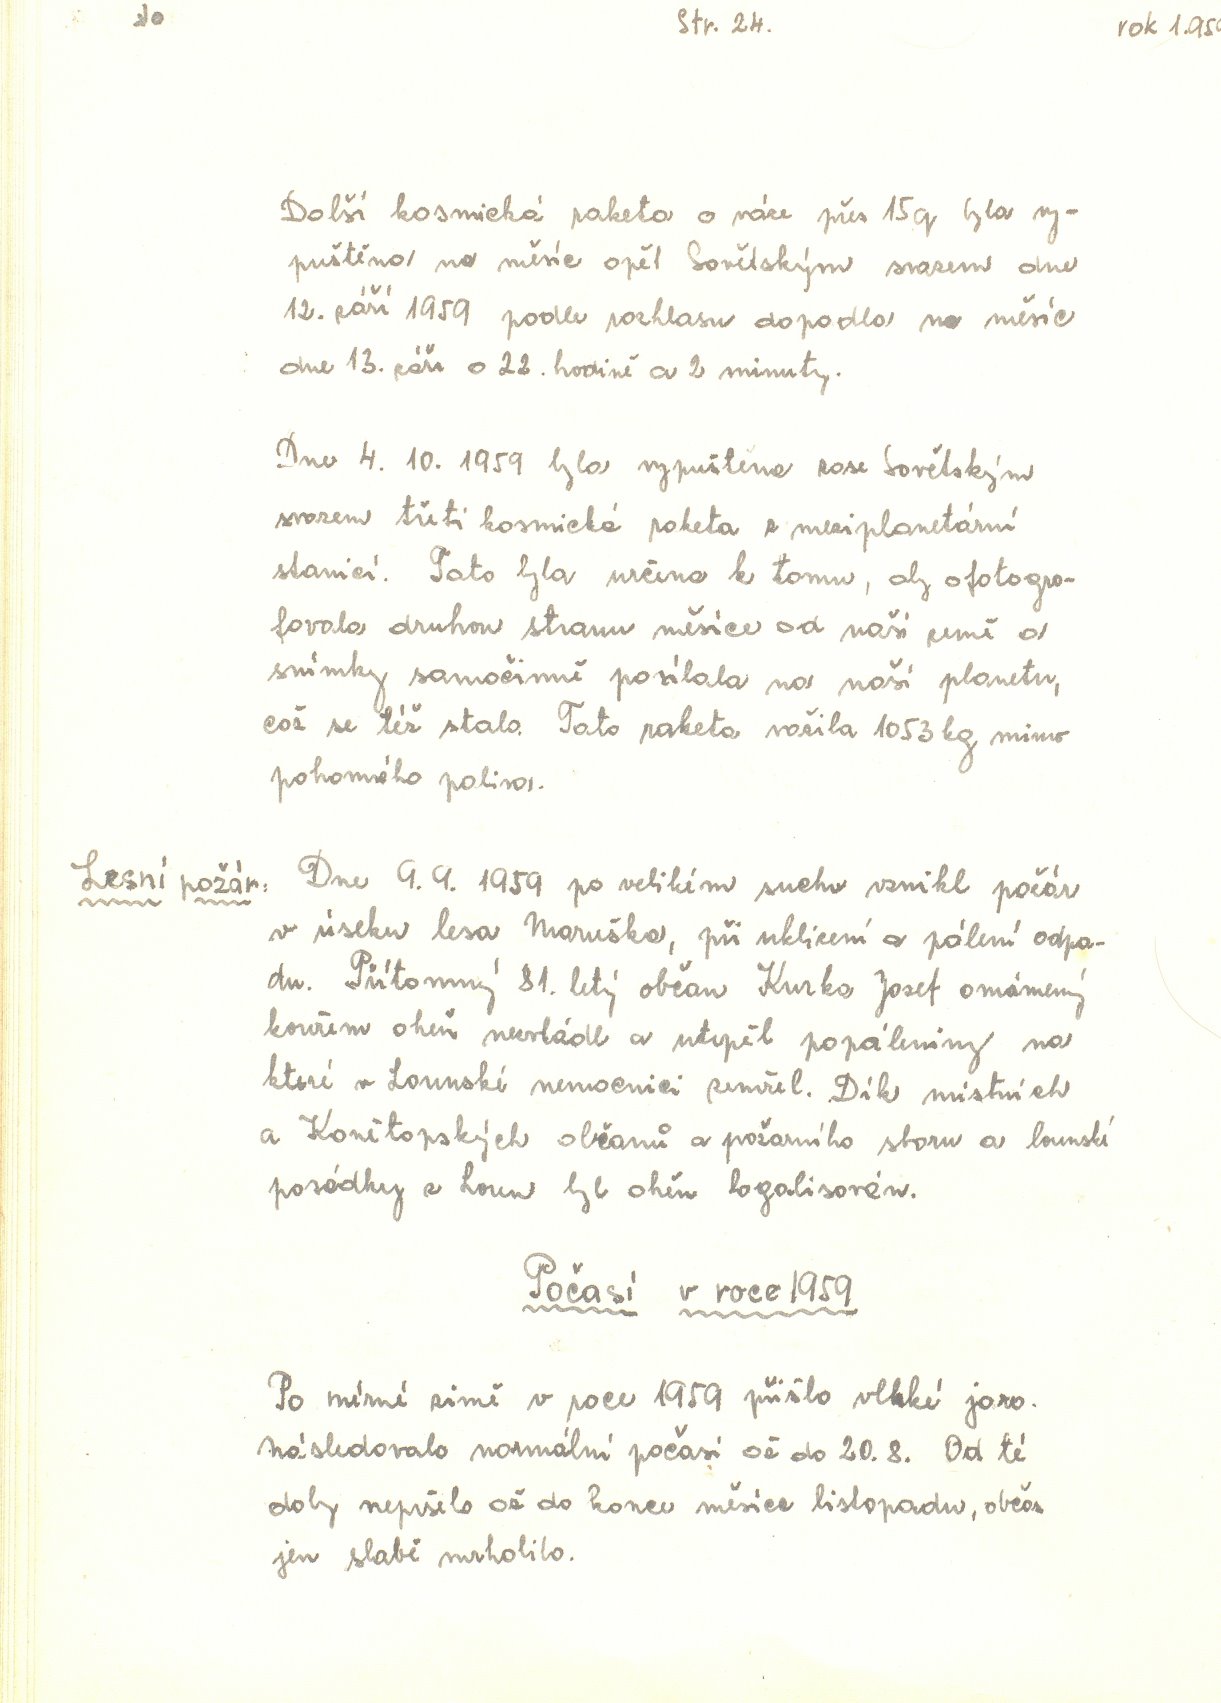 Str. 24.
rok 1.959
Další kosmická raketa o váze přes 15q byla vy-
puštěna na měsíc opět Sovětským svazem dne
12. září 1959 podle rozhlasu dopadla na měsíc
dne 13. září o 22. hodině a 2 minuty.
Dne 4. 10. 1959 byla vypuštěna zase Sovětským
svazem třetí kosmická raketa z meziplanetární
stanicí. Tato byla určena k tomu, aby ofotogra-
fovala druhou stranu měsíce od naší země a
snímky samočinně posílala na naší planetu,
což se též stalo. Tato raketa vážila 1053 kg mimo
pohonného paliva.
Lesní požár: Dne 9. 9. 1959 po velikém suchu vznikl požár
v úseku lesa Maruška, při uklizení a pálení odpa-
du. Přítomný 81. letý občan Kurka Josef omámený
kouřem oheň nezvládl a utrpěl popáleniny na
které v Lounské nemocnici zemřel. Dík místních
a Konětopských občanů a požárního sboru a lounské
posádky z Loun byl oheň logalisován.
Počasí v roce 1959
Po mírné zimě v roce 1959 přišlo vlhké jaro.
Následovalo normální počasí až do 20. 8. Od té
doby nepršelo až do konce měsíce listopadu, občas
jen slabě mrholilo.